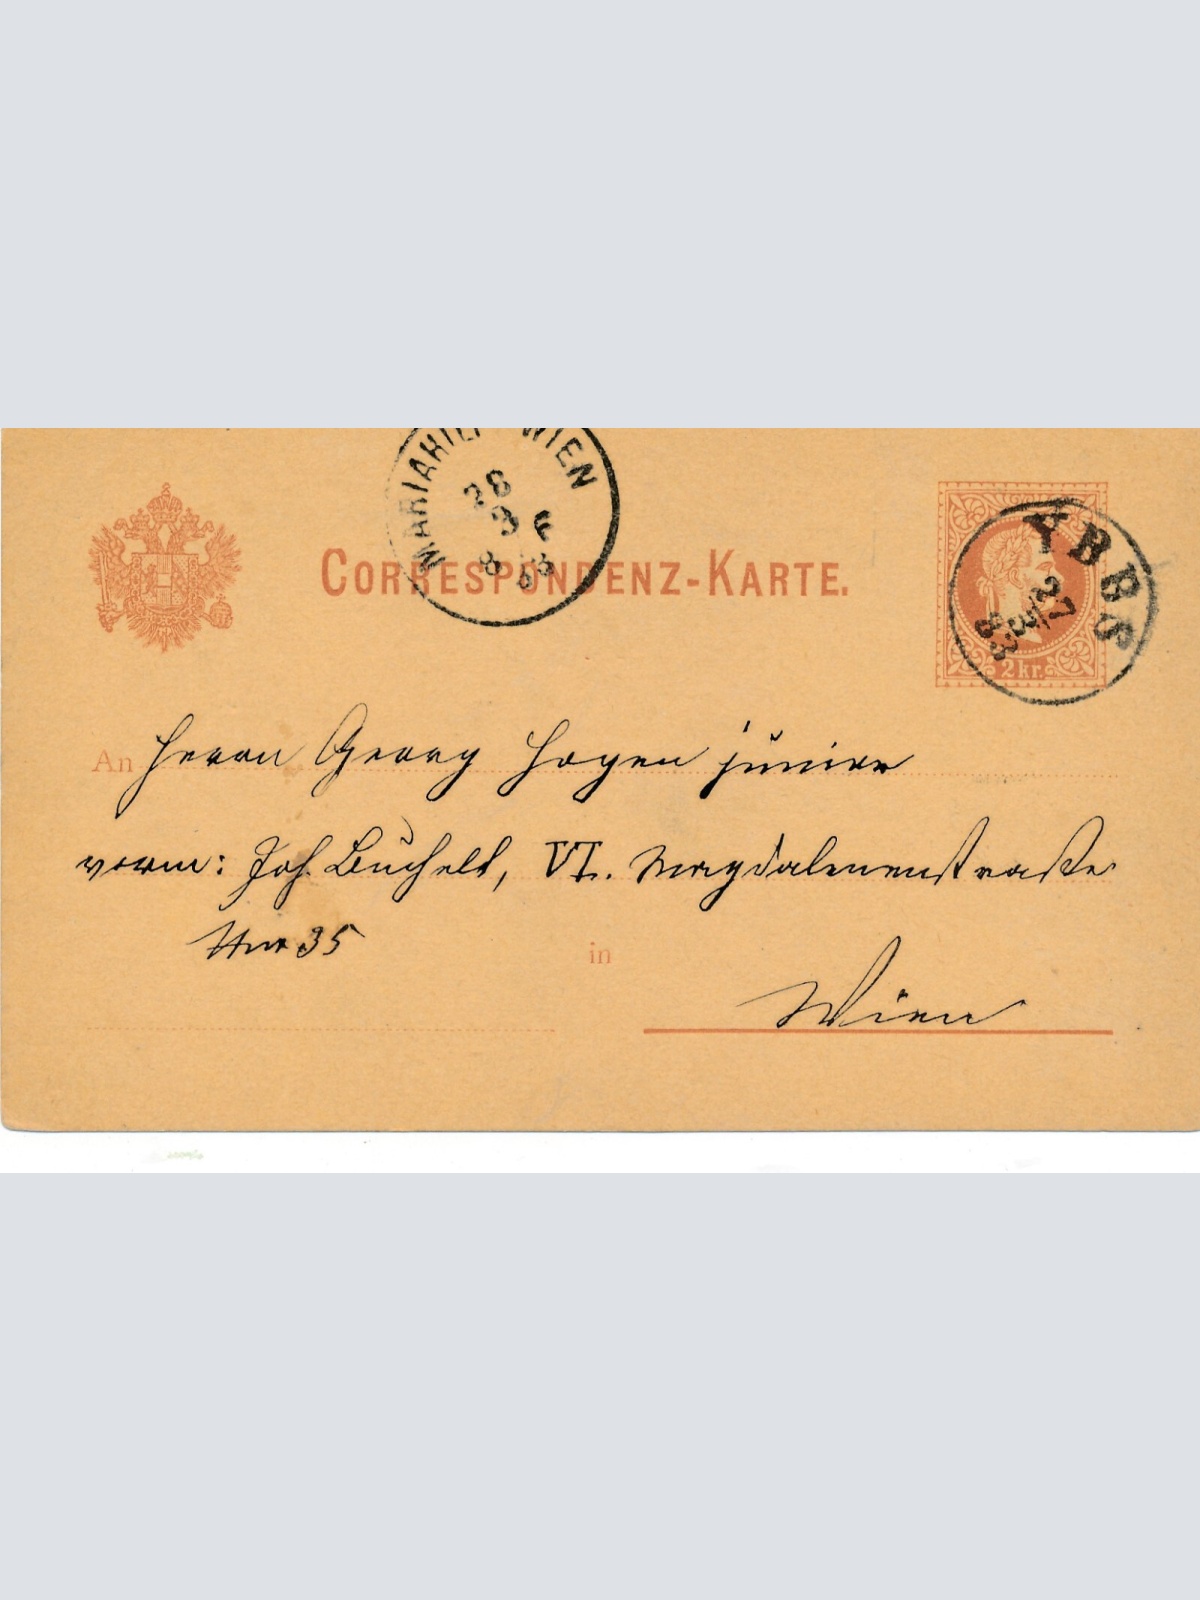 MARIAHILF WIEN
28
3 F
8 83
CORRESPONDENZ-KARTE.
YBBS
27
3
83
2 kr.
An Herrn Georg Hagen junior
vorm: Joh. Buchelt, VI. Magdalenenstraße
Nr 35
in Wien